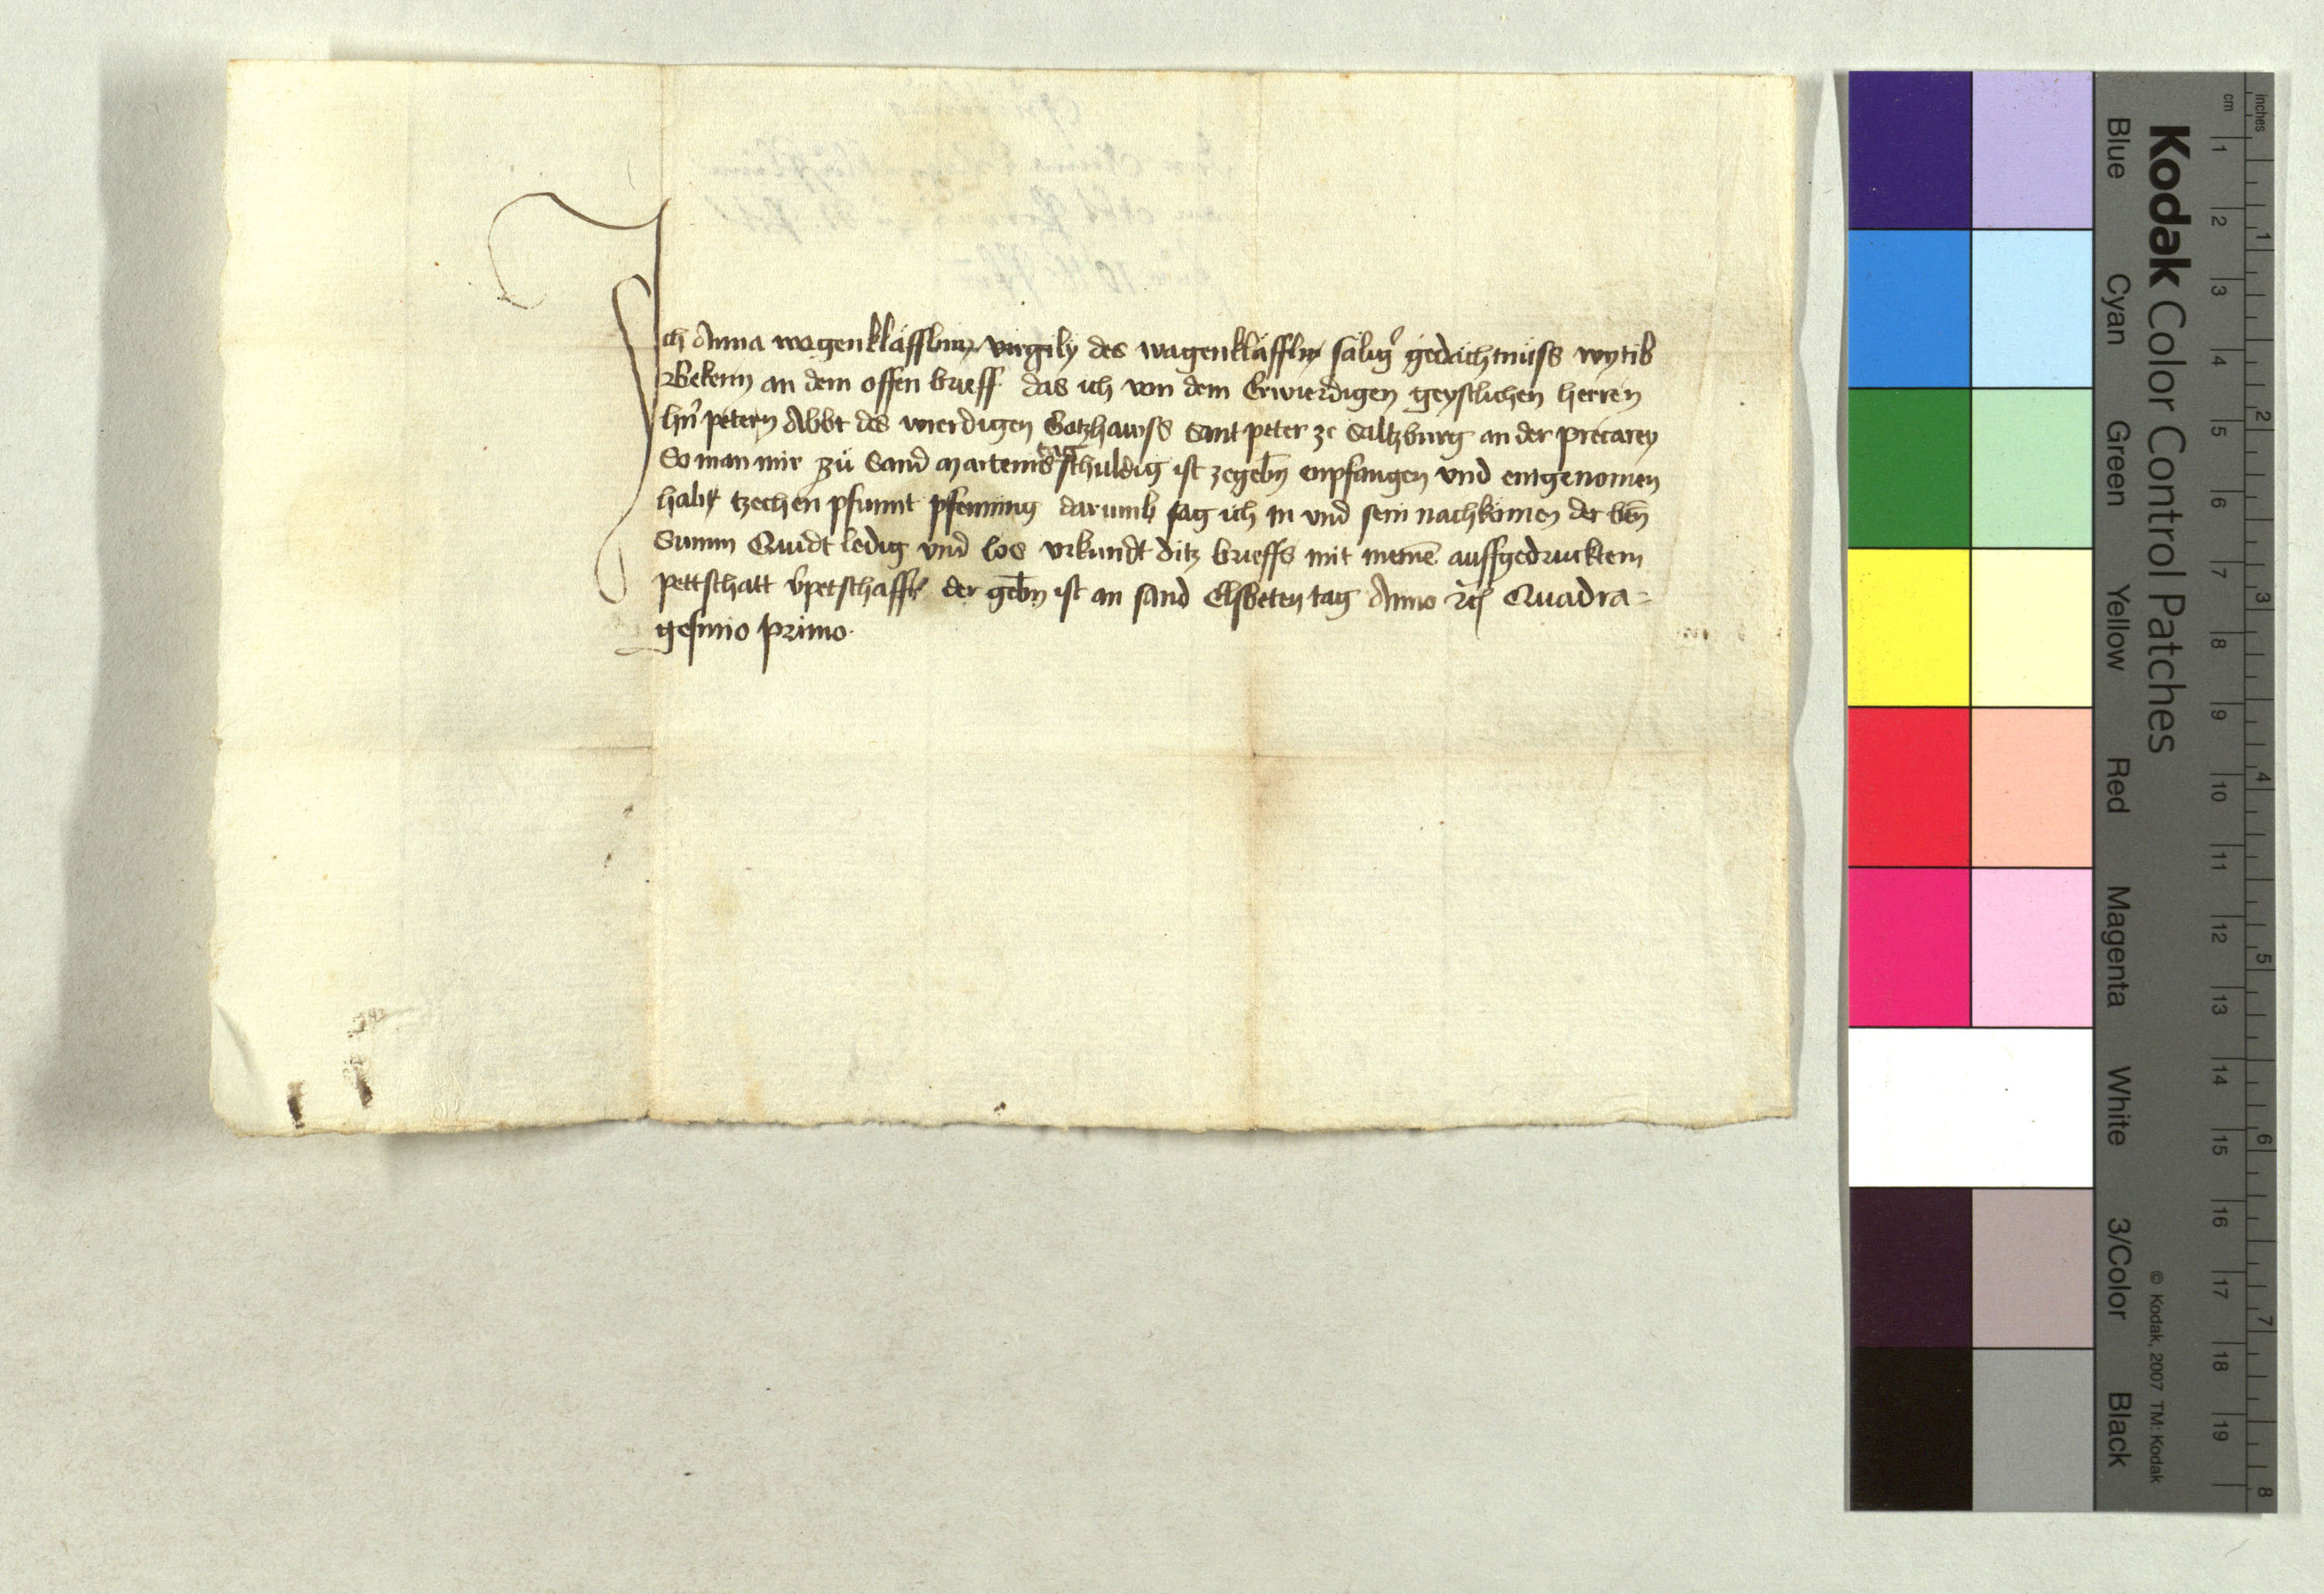 Ich Anna wagenkläfflin virgily des wagenkläffln sälig' gedächtnüss wytib
Bekenn an dem offen brieff das ich von dem Erwirdigen geystlichen herren
hn' petern Abbt des wierdigen Gotzhawss Sant peter ze Saltzburg an der precarey
So man mir zü Sand Marteins tag schuldig ist zegebn enpfangen vnd eingenomen
hab tzechen pfunnt pfenning darumb sag ich in vnd sein nachkömen der ben
Summ Quidt ledig vnd los vrkundt ditz brieffs mit meinē auffgedrucktem
pettschatt v̄petschafft der gebn ist an sand Elsbeten tag Anno rc Quadra=
gesimo primo.
Kodak Color Control Patches
Blue Cyan Green Yellow Red Magenta White 3/Color Black
© Kodak, 2007 TM: Kodak
cm 1 2 3 4 5 6 7 8 9 10 11 12 13 14 15 16 17 18 19
inches 1 2 3 4 5 6 7 8